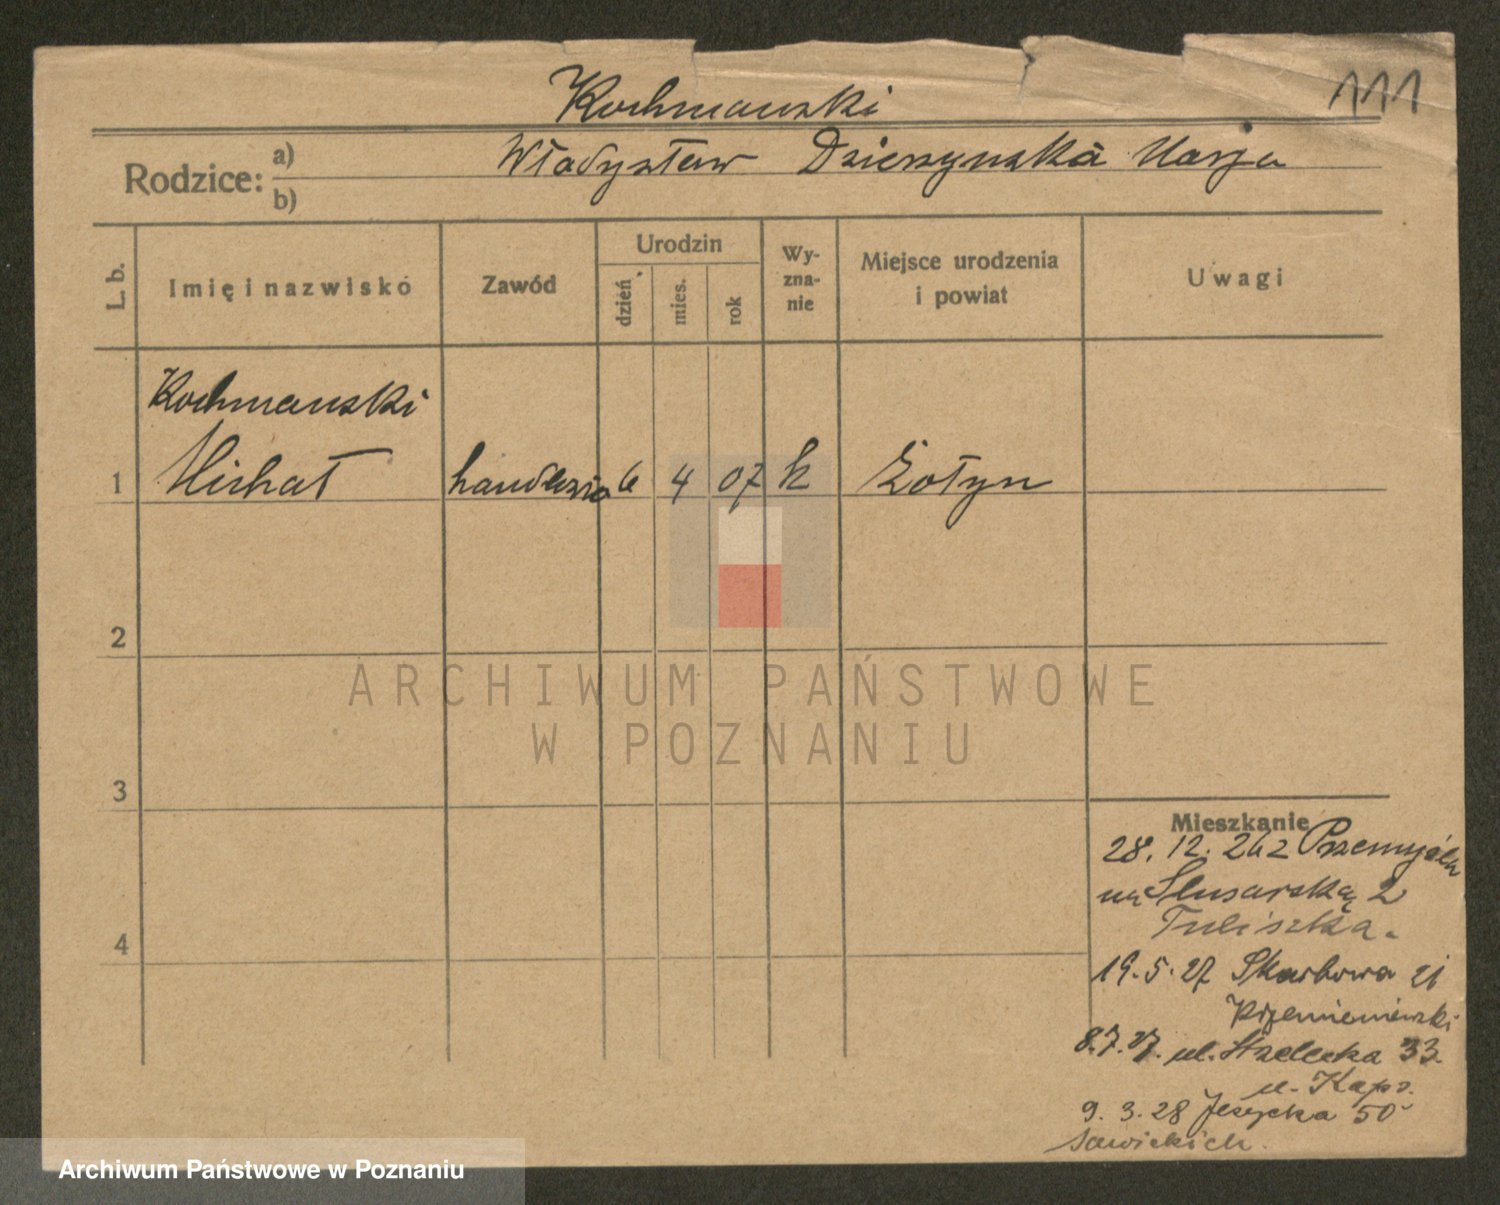 111
Kochmanski
Rodzice: a) Władysław Dzierzynska Marja
b)
L. b.
Imię i nazwisko
Zawód
Urodzin
dzień
mies.
rok
Wy-
zna-
nie
Miejsce urodzenia
i powiat
Uwagi
Kochmanski
1 Michał 6 4 07 k Żołyn
2
3
4
Mieszkanie
28. 12. 26 z Przemyśla
na Slusarską 2
Tuliszka.
19. 5. 27 Skarbowa 21
Krzemieniewski
8.7.27. ul. Strzelecka 33.
u. Kaps.
9. 3. 28 Jeżycka 50
Sawickich.
ARCHIWUM PAŃSTWOWE
W POZNANIU
Archiwum Państwowe w Poznaniu